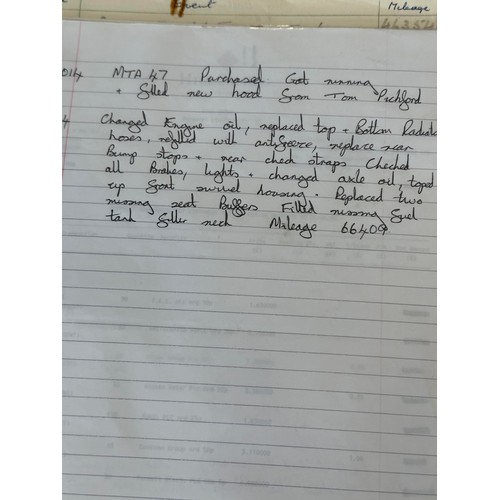 Event Mileage
46354
014 MTA 47 Purchased Got running
+ filled new hood from Tom Pickford
4 Changed Engine oil, replaced top + Bottom Radiato
hoses, refilled with antifreeze, replace rear
Bump stops + rear check straps Checked
all Brakes, lights + changed axle oil, toped
up front swivel housing. Replaced two
missing seat Buffers Filled missing fuel
tank filler neck Mileage 66409